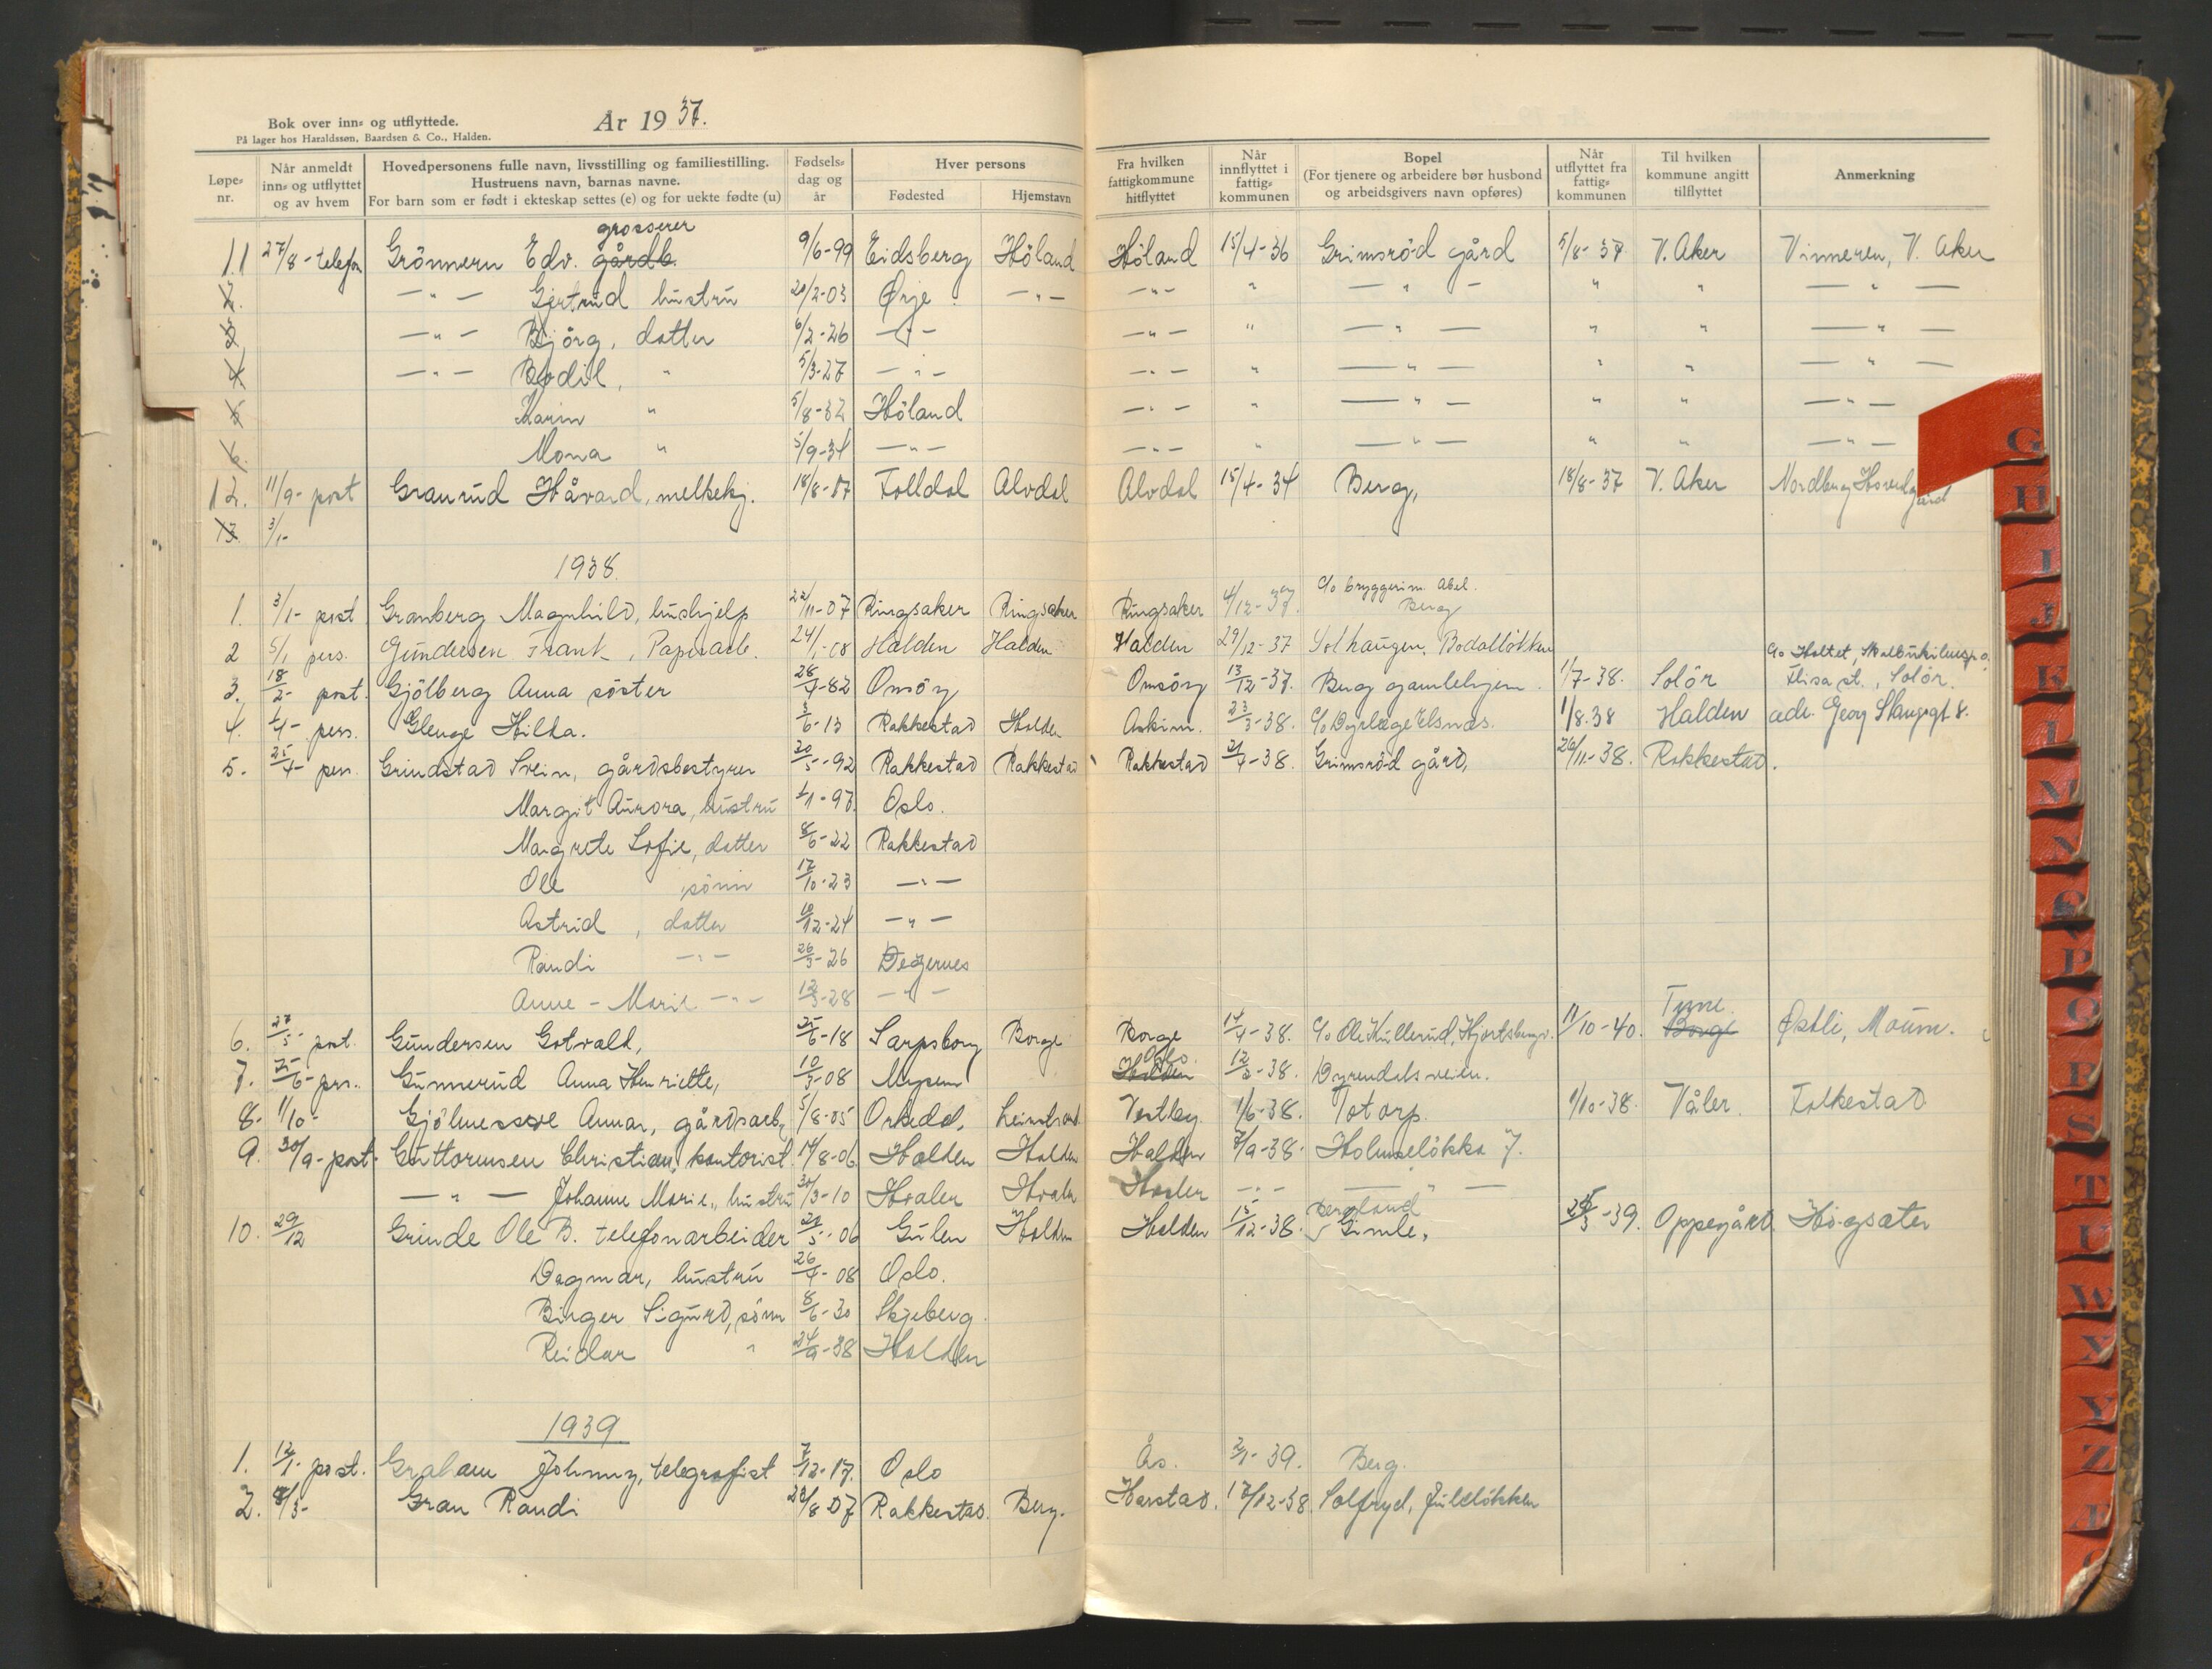 Bok over inn- og utflyttede.
På lager hos Haraldssøn, Baardsen & Co., Halden.
År 1937.
Løpe-nr. | Når anmeldt inn- og utflyttet og av hvem | Hovedpersonens fulle navn, livsstilling og familiestilling. Hustruens navn, barnas navne. For barn som er født i ekteskap settes (e) og for uekte fødte (u) | Fødsels-dag og år | Hver persons Fødested | Hjemstavn | Fra hvilken fattigkommune hitflyttet | Når innflyttet i fattig-kommunen | Bopel (For tjenere og arbeidere bør husbond og arbeidsgivers navn opføres) | Når utflyttet fra fattig-kommunen | Til hvilken kommune angitt tilflyttet | Anmerkning
grosserer
11 27/8 - telefon Grönnern Edv. gårdb. 9/6-99 Eidsberg Höland Höland 15/4-36 Grimsröd gård 5/8-37 V. Aker Vinneren, V. Aker
2. —"— Gjertrud hustru 20/2-03 Ørje —"— —"— " —"— " " —"—
3. —"— Bjørg, datter 6/2-26 —"— —"— " —"— " " —"—
4. —"— Bodil, " 5/3-27 —"— —"— " —"— " " —"—
5. Karin " 5/8-32 Höland —"— " —"— " " —"—
6. Mona " 5/9-34 —"— —"— " —"— " " —"—
12. 11/9- post Graurud Håvard, melkekj. 18/8-07 Folldal Alvdal Alvdal 15/4-34 Berg, 18/8-37 V. Aker Nordberg
13. 3/1-
1938.
c/o bryggerim. Abel.
1. 3/1- post Granberg Magnhild, hushjelp 22/11-07 Ringsaker Ringsaker Ringsaker 4/12-37. Berg
2 5/1 pers. Gundersen Frank, Papirarb. 24/1-08 Halden Halden Halden 29/12-37 Solhaugen, Bødalløkken
c/o Holtet,
3. 18/2- post. Gjölberg Anna söster 28/4-82 Onsöy Onsöy 13/12-37. Berg gamlehjem. 1/7-38. Solör Flisa st., Solör.
4. 1/4- pers. Glenge Hilda. 3/6-13 Rakkestad Halden Askim. 23/3-38. c/o Dyrlæge Elsnæs. 1/8.38 Halden adr. Georg Stangsgt 8.
5. 25/4- pers. Grindstad Svein, gårdsbestyrer 20/5-92 Rakkestad Rakkestad Rakkestad 21/4-38. Grimsröd gård, 26/11-38. Rakkestad.
Margit Aurora, hustru 1/1-97. Oslo.
Margrete Sofie, datter 8/6-22 Rakkestad
Ole , sönn 17/10-23 —"—
Astrid , datter 10/12-24 —"—
Randi —"— 26/3-26 Degernes
Anne-Marie —"— 12/3-28 —"—
Tune
6. 27/5- post. Gundersen Gotvalt, 25/6-18 Sarpsborg Borge Borge 14/4-38. c/o Ole Kullerud, Hjortsbergv. 11/10-40. Borge Østli, Moum.
Oslo.
7. 25/6- pers. Gunnerud Anna Henriette, 10/3-08 Mysen Halden 12/2-38. Dyrendalsveien.
8. 1/10- Annar, gårdsarb. 5/8-05 Orkedal, Leinstrand Vestby 1/6-38. Totorp. 1/10-38. Våler. Folkestad
9. 30/9- post. Guttormsen Christian, kontorist. 14/8-06 Halden Halden Halden 7/9-38. Holmseløkka 7.
—"— Johanne Marie, hustru 30/3-10 Hvaler Hvaler Hvaler —"— —"—
Bergland
10. 29/12 Grinde Ole B. telefonarbeider 28/5-06 Gulen Halden Halden 15/12-38. Gimle, 25/3-39. Oppegård Högsæter
Dagmar, hustru 26/4-08 Oslo.
Birger Sigurd, sönn 8/6-30 Skjeberg.
Reidar " 24/9-38 Halden
1939
1. 12/1- post. Graham Johnny, telegrafist 7/12-17. Oslo Ås. 2/1-39. Berg.
2. 8/3- Gran Randi 28/8 07 Rakkestad. Berg. Harstad. 17/12-38. Solfryd, Juleløkken
G
H
I
J
K
L
M
N
O
P
Q
R
S
T
U
W
X
Y
Z